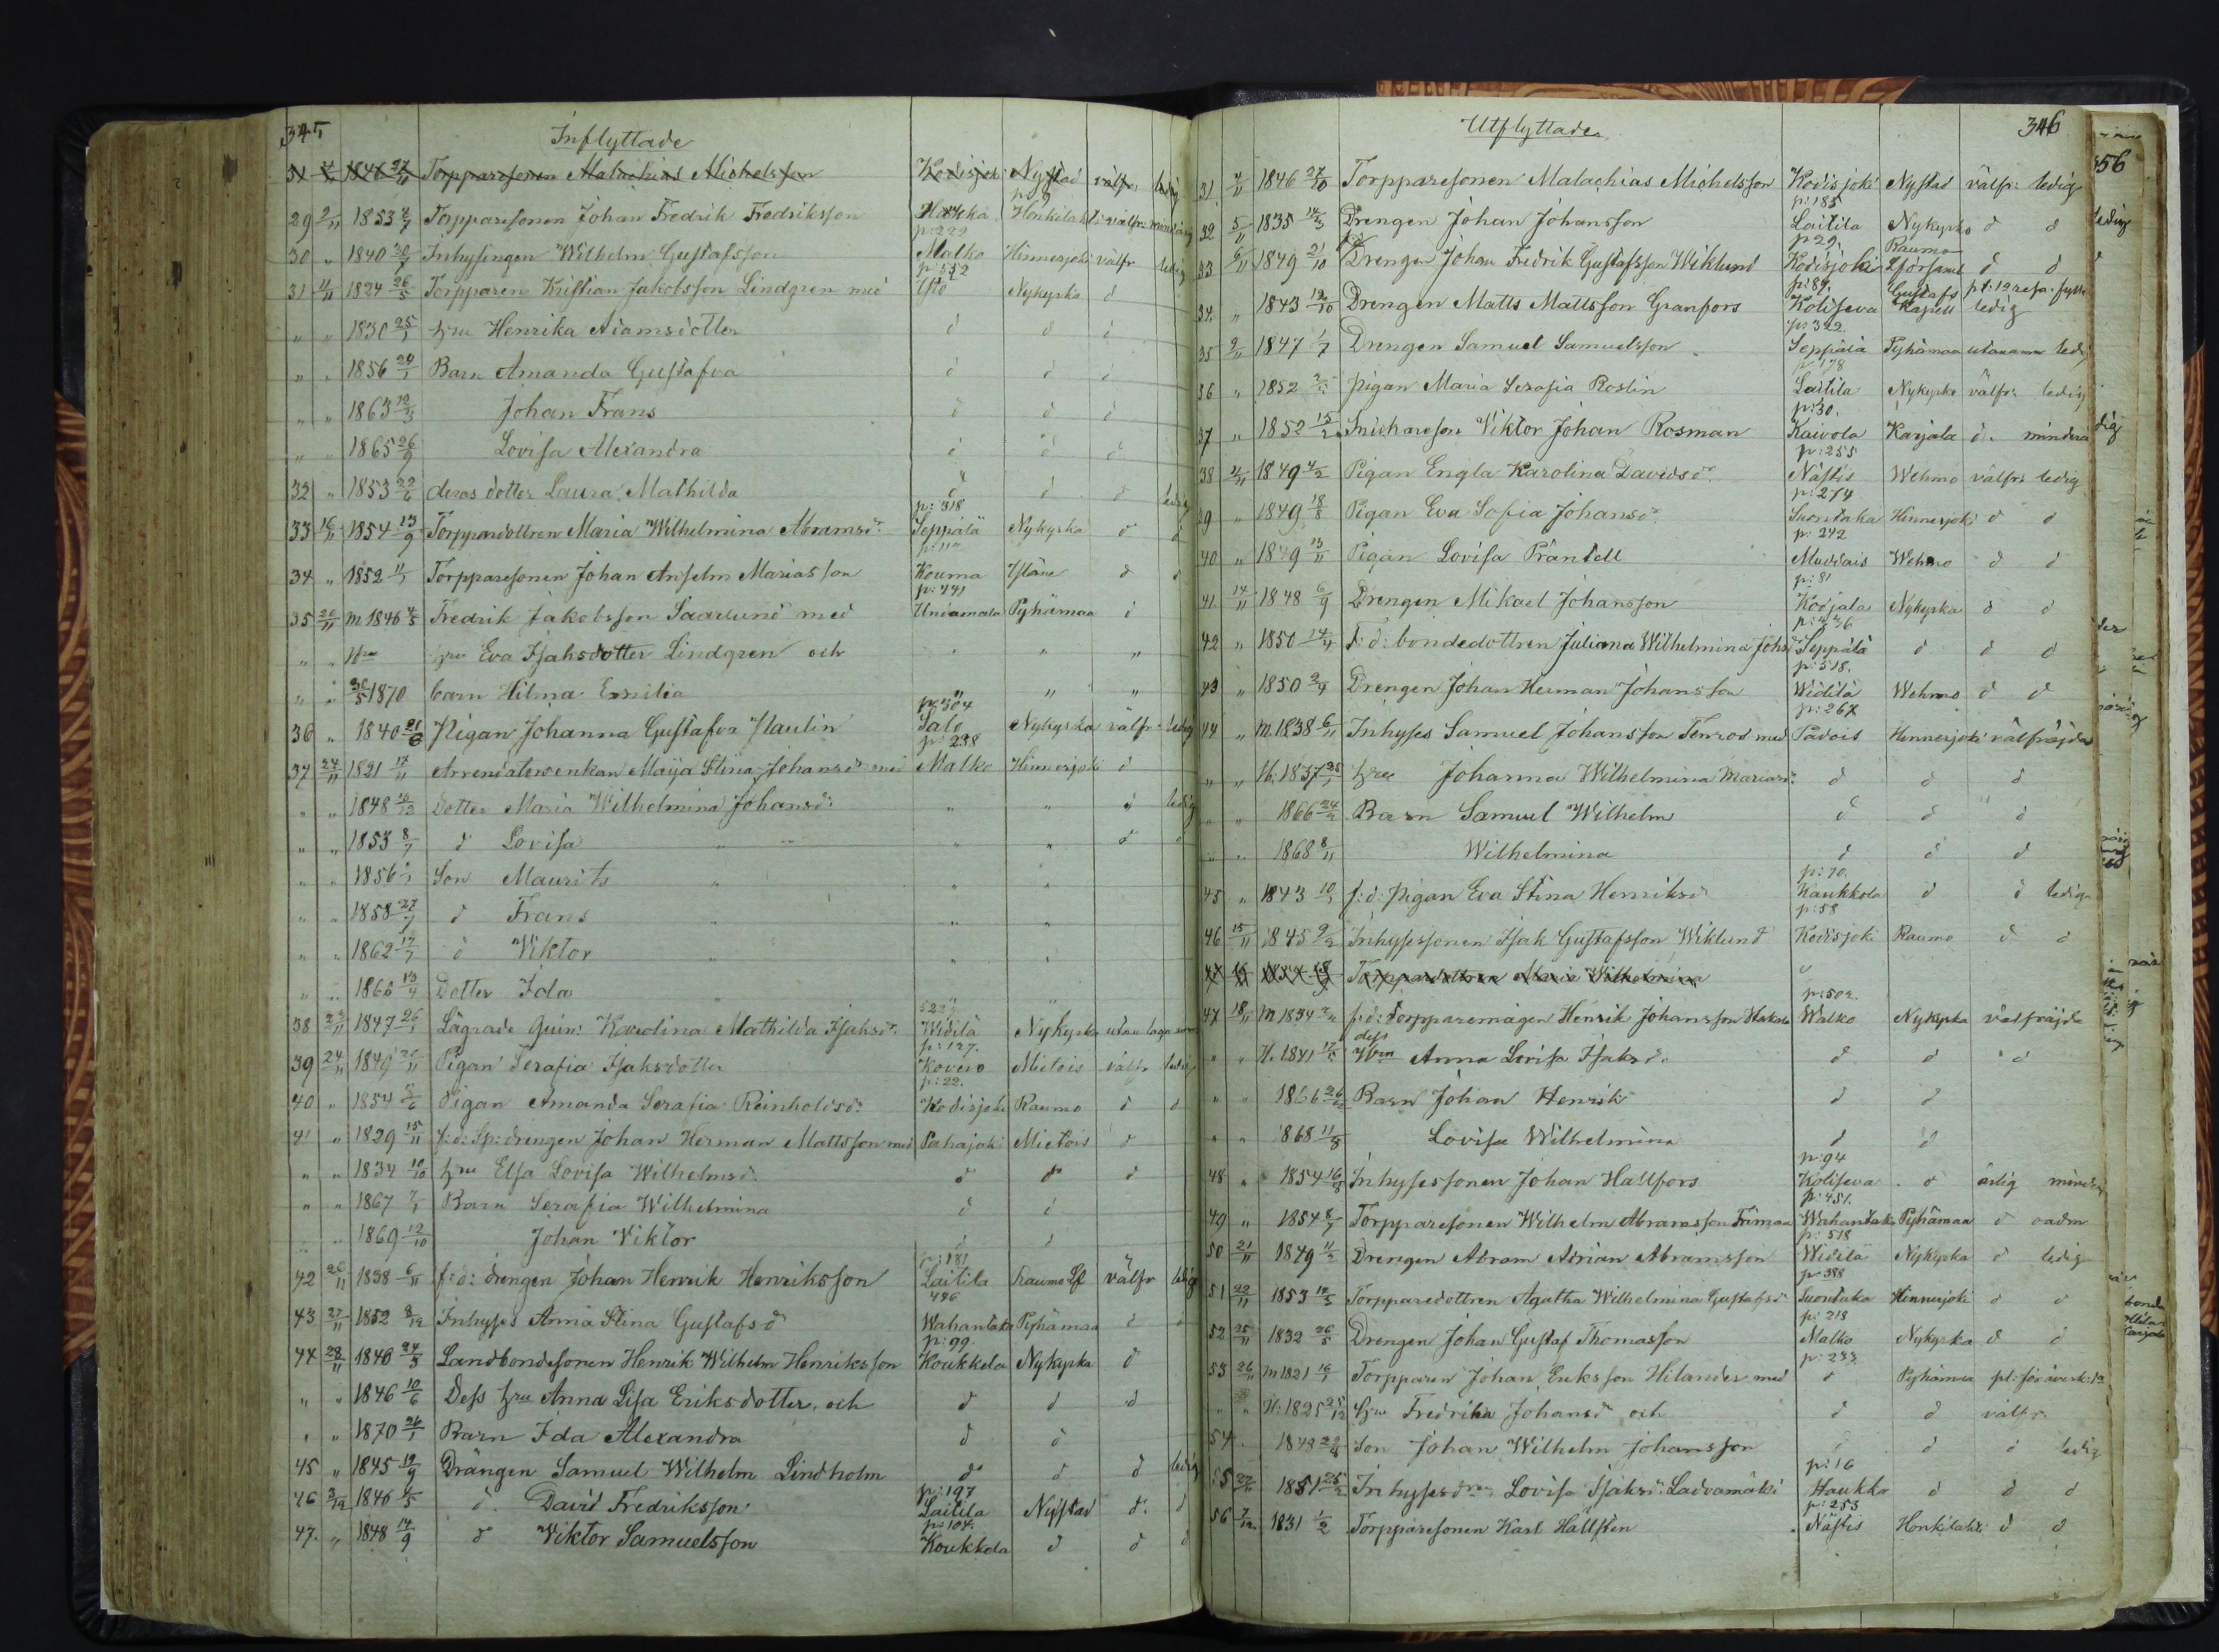 345 Inflyttade
31 4/11 1846 27/11 Torpparesonen Malachias Michelsson Kodisjoki Nystad välfr. ledig
p: 9
29 2/11 1853 Torpparesonen Johan Fredrik Fredriksson Haukka Honkilaks välfr: minderårig
p: 222
30 " 1840 30/7 Inhysingen Wilhelm Gustafsson Malko Hinnerjoki välfr ledig
p: 552
31 11/11 1824 26/5 Torpparen Kristian Jakobsson Lindgren med Ylö Nykyrka d
" " 1830 25/1 hru Henrika Adamsdotter d d d
" " 1856 20/1 Barn Amanda Gustafva d d d
" " 1863 12/3 Johan Frans d d d
" " 1865 26/9 Lovisa Alexandra d d d
32 " 1853 22/6 deras dotter Laura Mathilda d d d ledig
p: 318
33 16/11 1854 13/9 Torpparedottren Maria Wilhelmina Abramsd:r Seppälä Nykyrka d d
34 " 1852 11/1 Torpparesonen Johan Anselm Mariasson Kouma Yläne d d
p: 441
35 20/11 m 1846 4/5 Fredrik Jakobsson Saarlund med Undamala Pyhämaa d
" " hru Eva Isaksdotter Lindgren och " " "
" " 30/5 1870 barn Hilma Emilia " " "
p: 304
36 " 1840 21/6 Pigan Johanna Gustafva Flaulin Salo Nykyrka välfr ledig
p: 238
37 24/11 1821 17/11 Arrendatorsenkan Maija Stina Johansd:r med Malko Hinnerjoki d
" " 1848 16/12 Dotter Maria Wilhelmina Johansd: " " d ledig
" " 1853 8/7 d Lovisa " " " d d
" " 1856 Son Maurits " " "
" " 1858 27/7 d Frans " " "
" " 1862 17/7 d Wiktor " " "
" " 1866 13/4 Dotter Ida " "
522
38 1847 26/1 Lägrade Quin: Karolina Mathilda Isaksd:r Widilä Nykyrka utan laga
p: 127.
39 24/11 1849 Pigan Serafia Isaksdotter Kovero Mietois välfr ledig
p: 22.
40 " 1854 Pigan Amanda Serafia Reinholdsd: Kodisjoki Raumo d d
41 " 1829 15/11 f:d: Sp: drengen Johan Herman Mattsson med Pahajoki Mietois d
" " 1834 10/10 hru Elsa Lovisa Wilhelmsd. d d d
" " 1867 Barn Serafia Wilhelmina d d
" " 1869 12/10 Johan Viktor d d
p: 181
42 26/11 1838 6/11 f:d: drengen Johan Henrik Henriksson Laitila Raumo Lf välfr ledig
446
43 27/11 1852 8/12 Inhyses Anna Stina Gustafsd Wahantaka Pyhämaa d d
p: 99.
44 28/11 1840 24/3 Landbondesonen Henrik Wilhelm Henriksson Koukkela Nykyrka d
" " 1846 10/6 Dess hru Anna Lisa Eriksdotter, och d d d
" " 1870 26/1 Barn Ida Alexandra d d
45 " 1845 19/9 Drängen Samuel Wilhelm Lindholm d d d ledig
p: 197
46 3/12 1846 6/5 d. David Fredriksson Laitila Nystad d. d
p: 104.
47. " 1848 14/9 d Wiktor Samuelsson Koukkela d d d
Utflyttade 346
31 4/11 1846 27/10 Torpparesonen Malachias Michelsson Kodisjoki Nystad välfr: ledig
p: 185
32 5/11 1835 14/3 Drengen Johan Johansson Laitila Nykyrko d d
p 29. Raumo
33 6/11 1849 21/10 Drengen Johan Fredrik Gustafsson Wiklund Kodisjoki Lförsaml d d
p: 89. Gustafs
34. " 1843 12/10 Drengen Matts Mattsson Granfors Koliseva Kapell ledig
p: 322.
35 9/11 1847 1/7 Drengen Samuel Samuelsson Seppälä Pyhämaa utanamn ledig
p: 178
36 " 1852 Pigan Maria Serafia Roslin Laitila Nykyrko välfr: ledig
p: 30.
37 " 1852 15/2 Snickareson Viktor Johan Rosman Kaivola Karjala d. mindera
p: 255
38 11/11 1849 4/2 Pigan Engla Karolina Davidsd:r Nästis Wehmo välfr: ledig
p: 274
39 " 1849 18/8 Pigan Eva Sofia Johansd:r Suontaka Hinnerjoki d d
p: 242
40 " 1849 13/11 Pigan Lovisa Präntell Muddais Wehmo d d
p: 81
41 14/11 1848 6/9 Drengen Mikael Johansson Kodjala Nykyrka d d
42 " 1850 14/4 F: d: bondedottren Juliana Wilhelmina Johsd Seppälä d d d
p: 518.
43 " 1850 2/4 Drengen Johan Herman Johansson Widilä Wehmo d d
p: 267
44 " m. 1838 6/11 Inhyses Samuel Johansson Tenrod med Padois Hinnerjoki välfräjda
" " H. 1837 hru Johanna Wilhelmina Mariasd: d d d
" " 1866 24/2 Barn Samuel Wilhelm d d d
" " 1868 8/11 Wilhelmina d d d
p: 70.
45 " 1843 10/3 f: d: Pigan Eva Stina Henriksd Kaukkola d d ledig
p: 58
46 15/11 1845 9/2 Inhysessonen Isak Gustafsson Wiklund Kodisjoki Raumo d d
47 16/11 1854 13/9 Torpparedottren Maria Wilhelmina
p: 502.
47 18/11 m 1834 f: d: Torpparemågen Henrik Johansson Hakala Malko Nykyrka välfräjda
dess
" " H. 1841 17/5 Hru Anna Lovisa Isaksd. d d d
" " 1866 Barn Johan Henrik d d
" " 1868 11/8 Lovisa Wilhelmina d d
p: 94
48 " 1854 16/8 Inhysessonen Johan Hallfors Koliseva d ärlig minder
p: 451.
49 " 1854 8/7 Torpparesonen Wilhelm Abramsson Friman Wahantaka Pyhämaa d oadm
p: 518
50 21/11 1849 11/2 Drengen Abram Adrian Abramsson Widilä Nykyrka d ledig
p: 388
51 22/11 1853 Torpparedottren Agatha Wilhelmina Gustafsd Suontaka Hinnerjoki d d
p: 218
52 25/11 1832 26/5 Drengen Johan Gustaf Thomasson Malko Nykyrka d d
p: 233
53 26/11 m 1821 16/1 Torpparen Johan Eriksson Hilander med d Pyhämaa
" " H: 1825 25/12 hru Fredrika Johansd och d d välfr.
54 1848 Son Johan Wilhelm Johansson d d d ledig
p: 16
55 27/11 1851 25/2 Lovisa Isaksd: Ladvamäki Haukka d d d
p: 253
56 7/12 1831 1/2 Torpparesonen Karl Hallsten Nästis Honkilahti d d
56
ledig